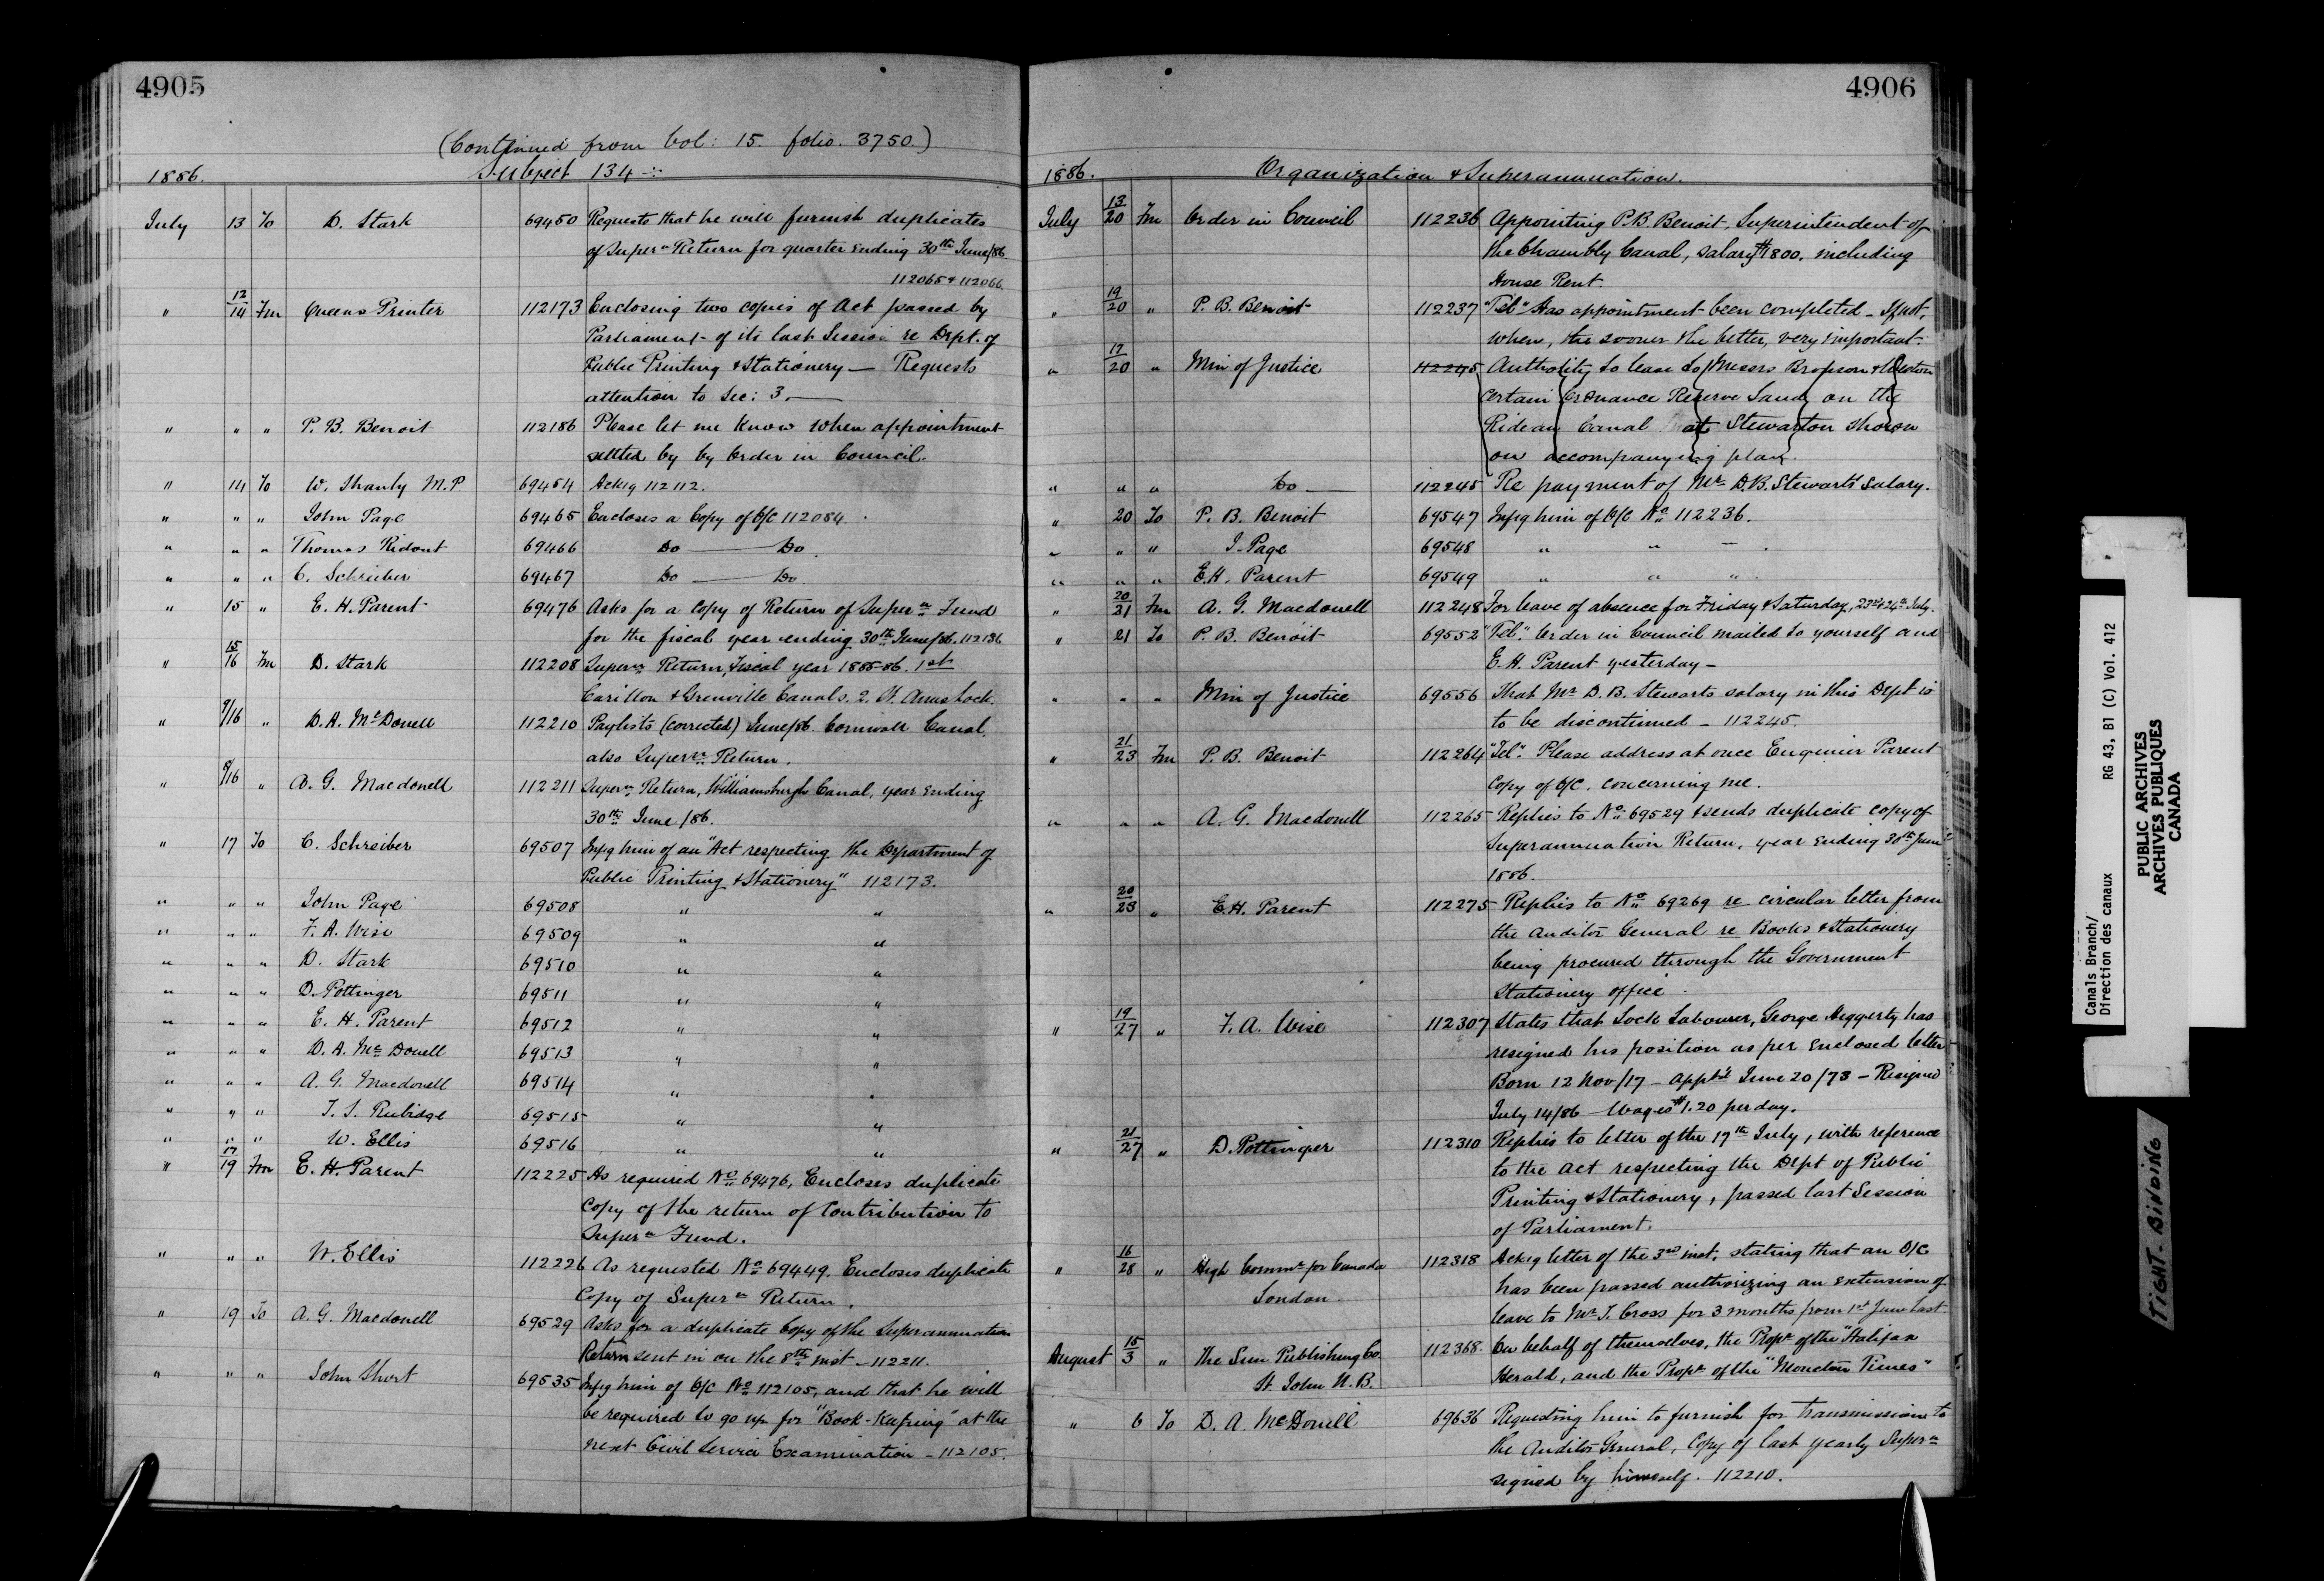 4905
(Continued from Vol: 15. folio. 3750.)
1886. Subject 134 -:-
July 13 To D. Stark 69450 Requests that he will furnish duplicates
of Super.n Return for quarter ending 30th June/86.
112065 & 112066.
" 12/14 Fm Queens Printer 112173 Enclosing two copies of Act passed by
Parliament of its last Session re Dept. of
Public Printing & Stationery — Requests
attention to Sec: 3. —
" " " P. B. Benoit 112186 Please let me know when appointment
settled by by Order in Council.
" 14 To W. Shanly M.P 69454 Ackg 112112.
" " " John Page 69465 Encloses a Copy of O/C 112084.
" " " Thomas Ridout 69466 Do — Do.
" " " C. Schreiber 69467 Do — Do
" 15 " E. H. Parent 69476 Asks for a Copy of Return of Super.n Fund
for the fiscal year ending 30th June/86. 112186
" 15/16 Fm D. Stark 112208 Super.n Return, Fiscal year 1885-86. 1st
Carillon & Grenville Canals. 2. St. Anns Lock.
" 9/16 " D. A. McDonell 112210 Paylists (corrected) June/86. Cornwall Canal.
also Super.n Return.
" 8/16 " A. G. Macdonell 112211 Super.n Return, Williamsburgh Canal, year ending
30th June /86.
" 17 To C. Schreiber 69507 Infg him of an "Act respecting the Department of
Public Printing & Stationery" 112173.
" " " John Page 69508 " "
" " " F. A. Wise 69509 " "
" " " D. Stark 69510 " "
" " " D. Pottinger 69511 " "
" " " E. H. Parent 69512 " "
" " " D. A. McDonell 69513 " "
" " " A. G. Macdonell 69514 " "
" " " T. S. Rubidge 69515 " "
" " " W. Ellis 69516 " "
" 17/19 Fm E. H. Parent 112225 As required No 69476, Encloses duplicate
Copy of the return of Contribution to
Super.n Fund.
" " " W. Ellis 112226 As requested No 69449. Encloses duplicate
Copy of Super.n Return.
" 19 To A. G. Macdonell 69529 Asks for a duplicate Copy of the Superannuation
Return sent in on the 8th inst. - 112211.
" " " John Short 69535 Infg him of O/C No 112105, and that he will
be required to go up for "Book-Keeping" at the
next Civil Service Examination - 112105.
4906
1886. Organization & Superannuation.
July 13/20 Fm Order in Council 112236 Appointing P.B. Benoit, Superintendent of
the Chambly Canal, salary $800. including
House Rent.
" 19/20 " P. B. Benoit 112237 "Tel." Has appointment been completed - If not,
when, the sooner the better, very important.
" 17/20 " Min of Justice 112245 Authority to lease to Messrs & Weston
certain Ordnance Reserve Land on the
Rideau Canal at Stewarton shown
on accompanying plan.
" " " Do — 112245 Re payment of Mr D.B. Stewarts salary.
" 20 To P. B. Benoit 69547 Infg him of O/C No 112236.
" " " J. Page 69548 " " - .
" " " E.H. Parent 69549 " " "
" 20/21 Fm A. G. Macdonell 112248 For leave of absence for Friday & Saturday, 23rd & 24th July.
" 21 To P. B. Benoit 69552 "Tel." Order in Council mailed to yourself and
E. H. Parent yesterday -
" " " Min of Justice 69556 That Mr D. B. Stewarts salary in this Dept is
to be discontinued - 112245.
" 21/23 Fm P. B. Benoit 112264 "Tel." Please address at once Engineer Parent
Copy of O/C. concerning me.
" " " A. G. Macdonell 112265 Replies to No 69529 & sends duplicate copy of
Superannuation Return, year ending 30th June
1886.
" 20/23 " E.H. Parent 112275 Replies to No 69269 re circular letter from
the Auditor General re Books & Stationery
being procured through the Government
Stationery office.
" 19/27 " F. A. Wise 112307 States that Lock Labourer, George Heggerty has
resigned his position as per enclosed letter
Born 12 Nov/17 - Apptd June 20/73 - Resigned
July 14/86 - Wages $1.20 per day.
" 21/27 " D. Pottinger 112310 Replies to letter of the 17th July, with reference
to the Act respecting the Dept of Public
Printing & Stationery, passed last Session
of Parliament.
" 16/28 " High Commr for Canada 112318 Ackg letter of the 3rd inst. stating that an O/C
London. has been passed authorizing an extension of
leave to Mr T. Cross for 3 months from 1st June last
August 15/3 " The Sun Publishing Co. 112368. On behalf of themselves, the Propr of the "Halifax
St. John N. B. Herald, and the Propr of the "Moncton Times"
" 6 To D. A. McDonell 69636 Requesting him to furnish for transmission to
the Auditor General, Copy of last yearly Super.n
signed by himself. 112210.
Canals Branch/
Direction des canaux RG 43, B1 (C) Vol. 412
PUBLIC ARCHIVES
ARCHIVES PUBLIQUES
CANADA
TIGHT BINDING